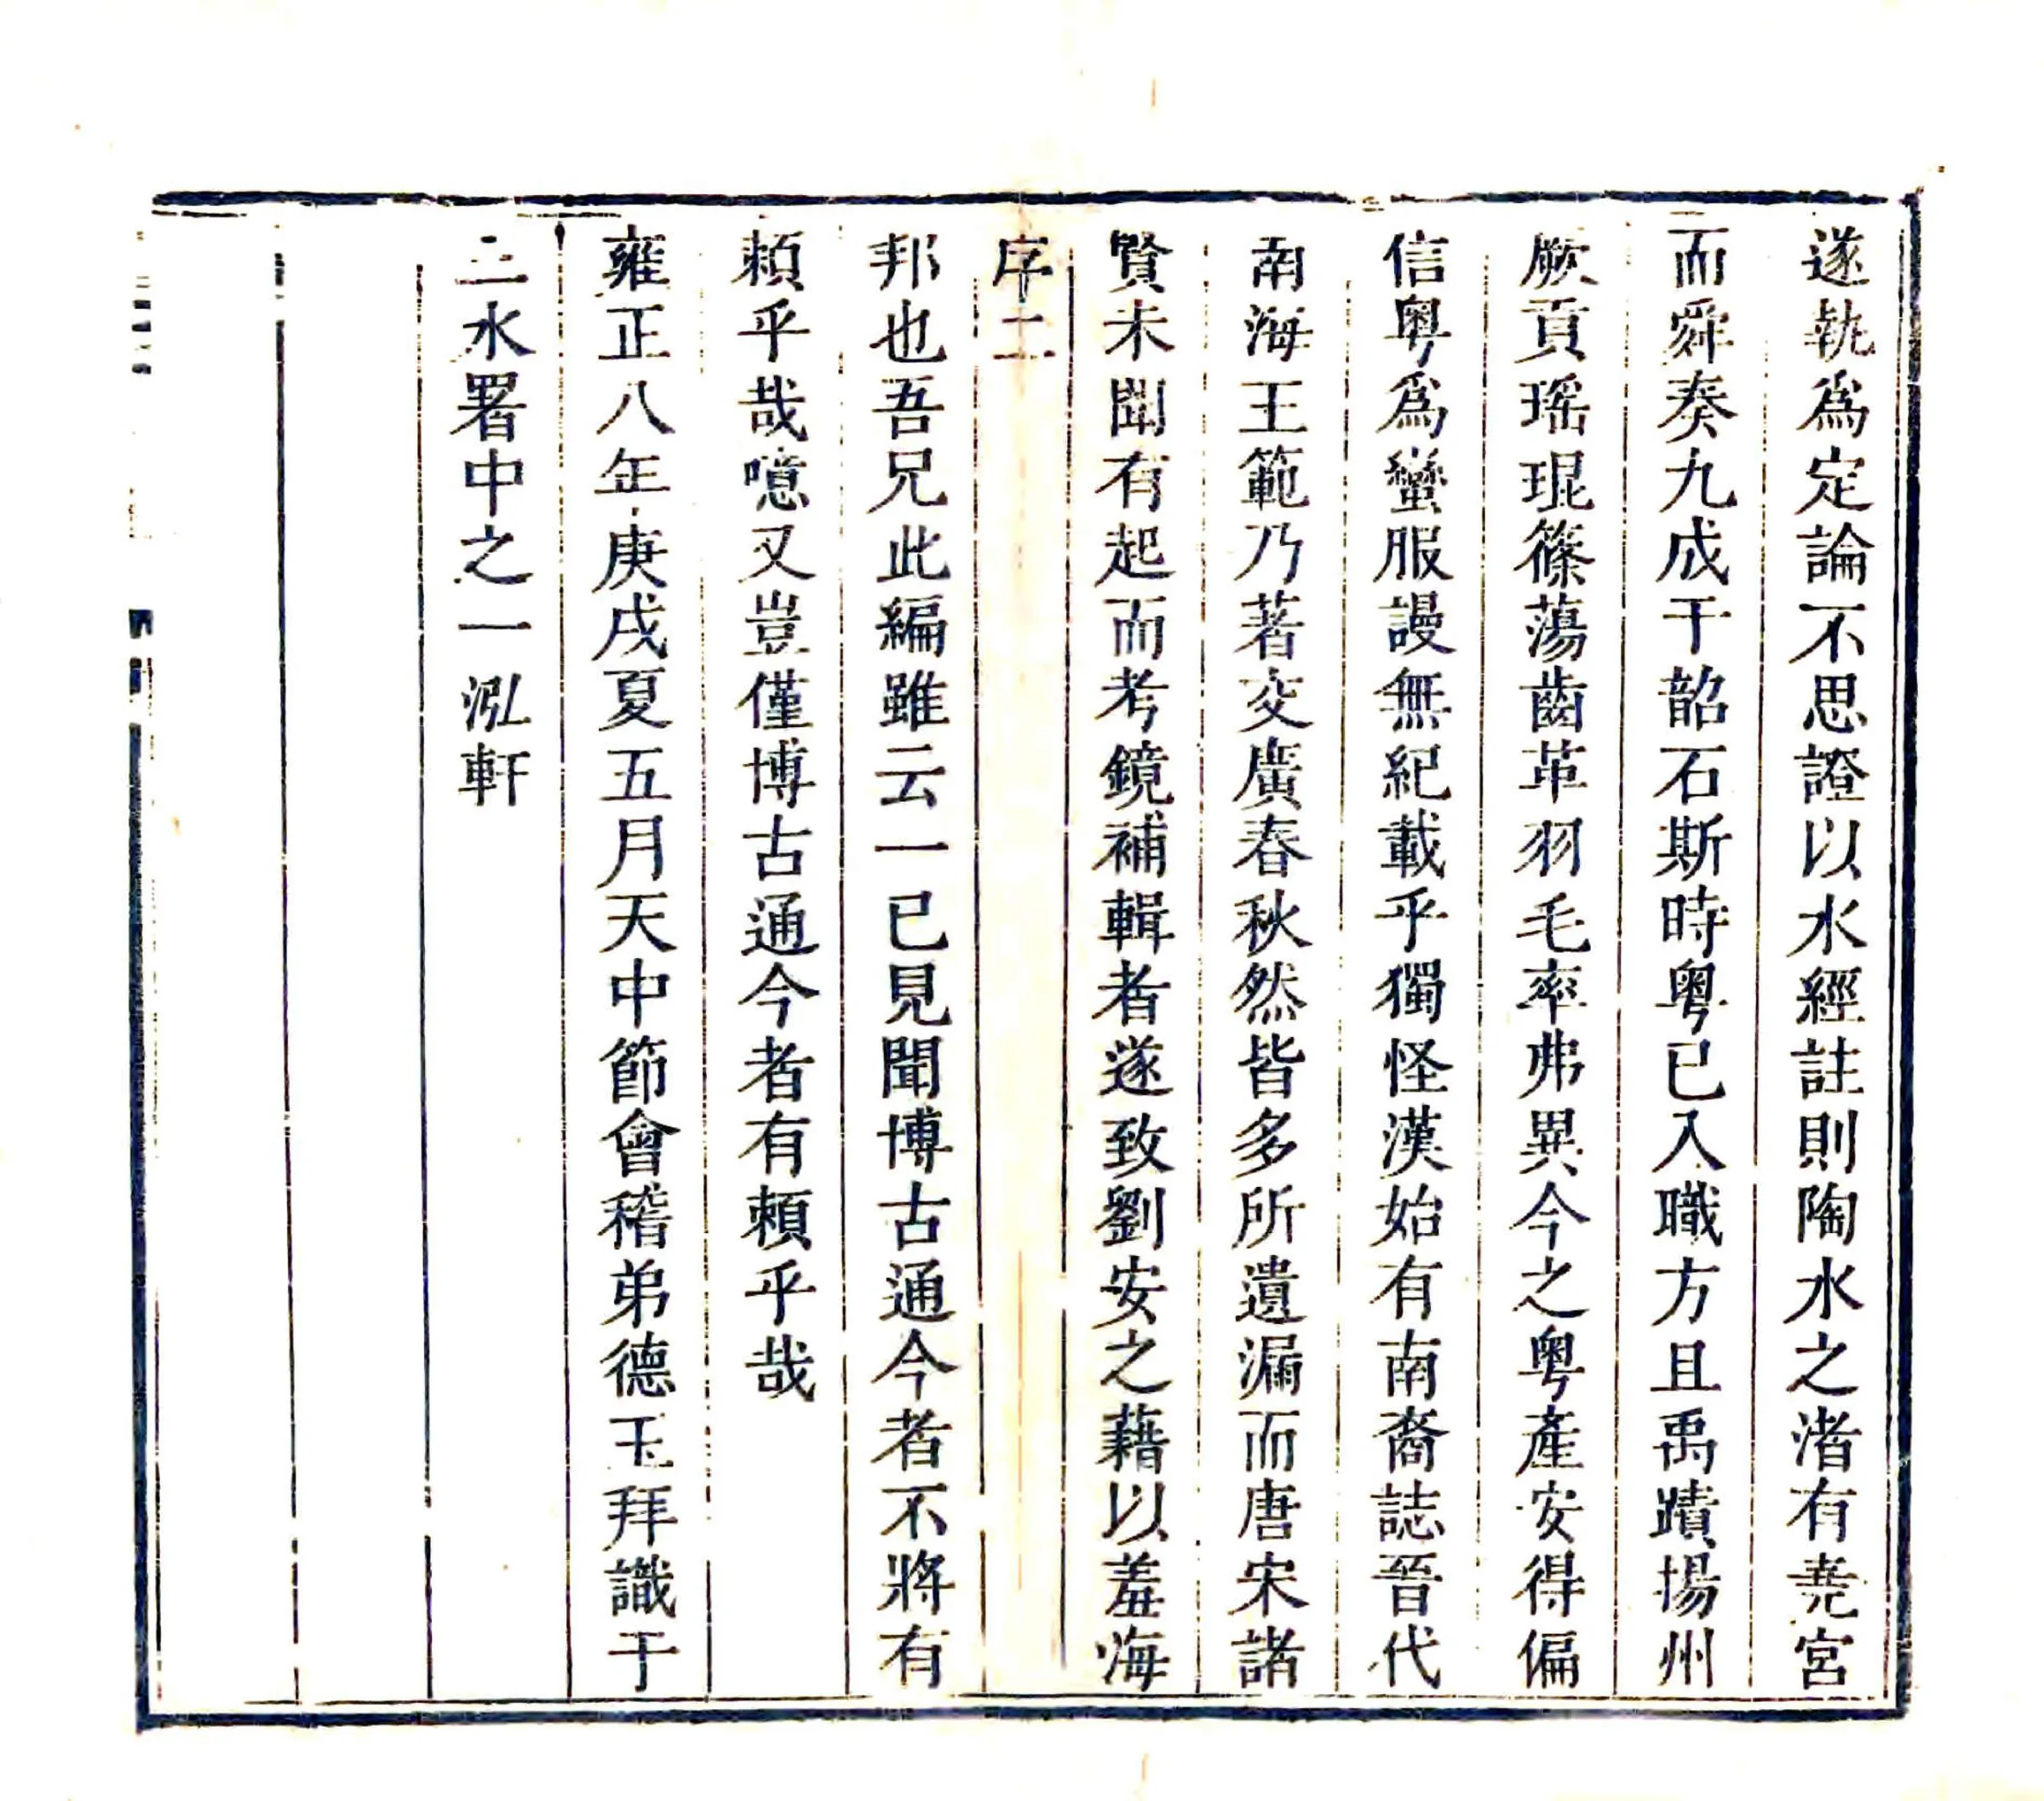 遂執爲定論不思證以水經註則陶水之渚有堯宮
而舜奏九成于韶石斯時粵已入職方且禹蹟揚州
厥貢瑶琨篠蕩齒革羽毛率弗異今之粵產安得偏
信粵爲蠻服謾無紀載乎獨怪漢始有南裔誌晉代
南海王範乃著交廣春秋然皆多所遺漏而唐宋諸
賢未聞有起而考鏡補輯者遂致劉安之藉以羞海
序二
邦也吾兄此編雖云一已見聞博古通今者不將有
頼乎哉噫又豈僅博古通今者有頼乎哉
雍正八年庚戌夏五月天中節會稽弟德玉拜識于
二水署中之一泓軒